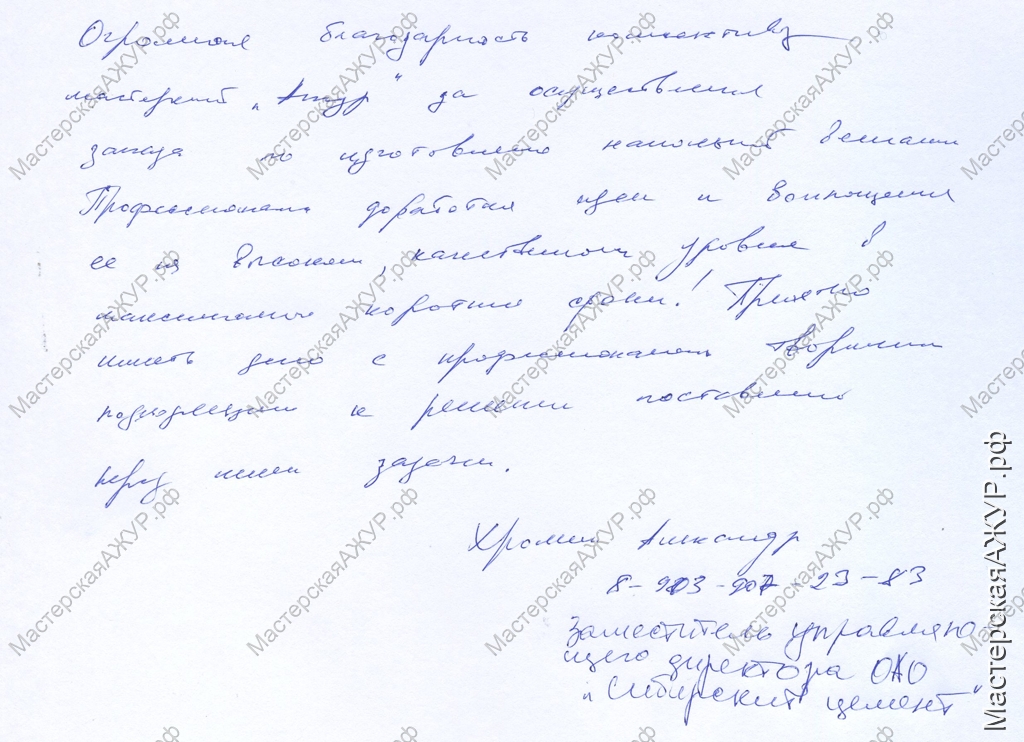 Огромная благодарность коллективу
мастерской „Ажур“ за осуществление
заказа по изготовлению напольной вешалки
Профессионально доработали идеи и воплощения
ее на высоком, качественном уровне в
максимально короткие сроки! Приятно
иметь дело с профессионалами творчески
подходящими к решению поставленных
перед ними задачи.
Александр
заместитель управляю
щего директора ОАО
"Сибирский цемент"
МастерскаяАЖУР.рф